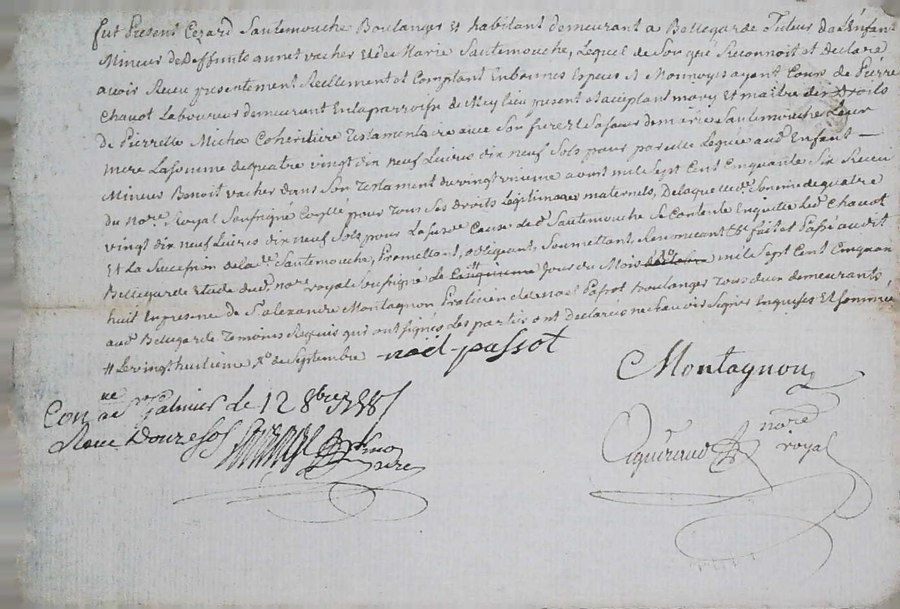 fut Present Cezard Sautemouche Boulanger et habitant demeurant a Bellegarde Tuteur de l'Enfant
Mineur de deffunts annet vacher et de Marie Sautemouche, Lequel de Son gré Reconnoit et declare
avoir Receu presentement Reellement et Comptant En bonnes Especes et Monnoys ayant Cour de Pierre
Chavot Laboureur demeurant En la parroisse de Meylieu present et acceptant mary et maitre des Droits
de Pierrette Micha Coheritiere Testamentaire avec Son frere et Sa Sœur de marie Sautemouche Leur
mere La Somme de quatre vingt dix neuf Livres dix neuf Sols pour pareille Leguée aud. Enfant
Mineur Benoit vacher dans Son Testament du vingt uneme aoust mil Sept Cent Cinquante Six Receu
du not.re Royal Soussigné Con.llé pour Tous Ses Droits Legitimaire maternels, de laquelle d. Somme de quatre
vingt dix neuf Livres dix neuf Sols pour La Susd. Cause Led. Sautemouche Se Contente En quitte led. Chavot
Et La Succession de lad. Sautemouche, Promettant, obligeant, Soumettant, Renoncant &c fait et Passé audit
Bellegarde Etude dud. not.re royal Soussigné Le jour du Mois mil Sept Cent Cinquan
huit En presence de S.r alexandre Montagnon Praticien et de noel Passot Boulanger Tous deux demeurants
aud. Bellegarde Temoins Requis qui ont signés Les parties ont declarés ne Scavoir Signer Enquises Et Sommée
# Le vingt huitieme Septembre noël passot
Montagnon
Con.lé a S.t galmier Le 12 8bre 1758
Receu Douze Sols
no.re
royal